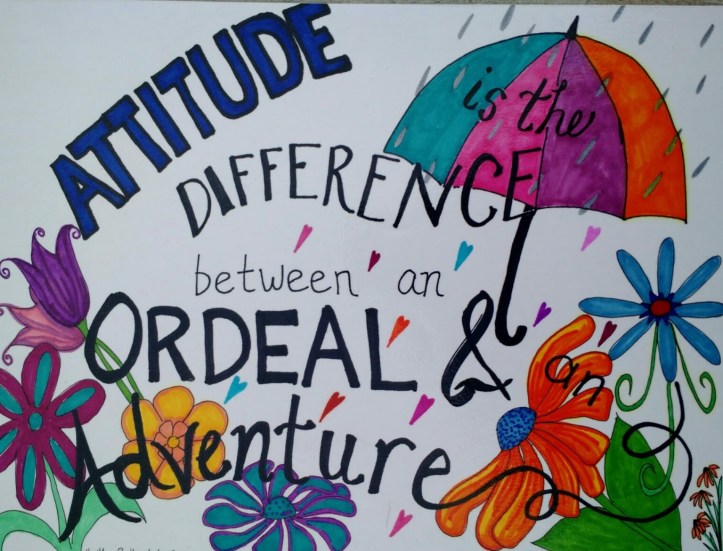 ATTITUDE
is the
DIFFERENCE
between an
ORDEAL &
an
Adventure